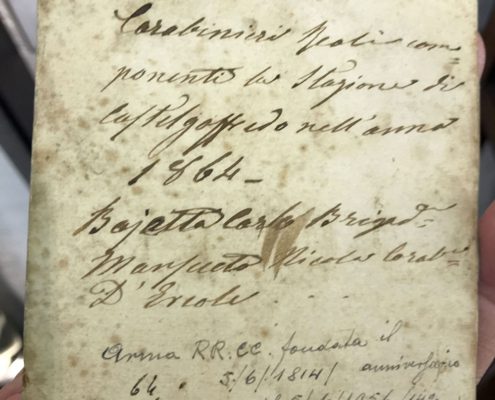 Carabinieri Reali com
ponenti la Stazione di
Castelgoffredo nell'anno
1864 -
Bajetta Carlo Brigad.
Mansueto Nicola Carab.
D'Ercole . . .
Arma RR.CC. fondata il
5/6/1814/ anniversario